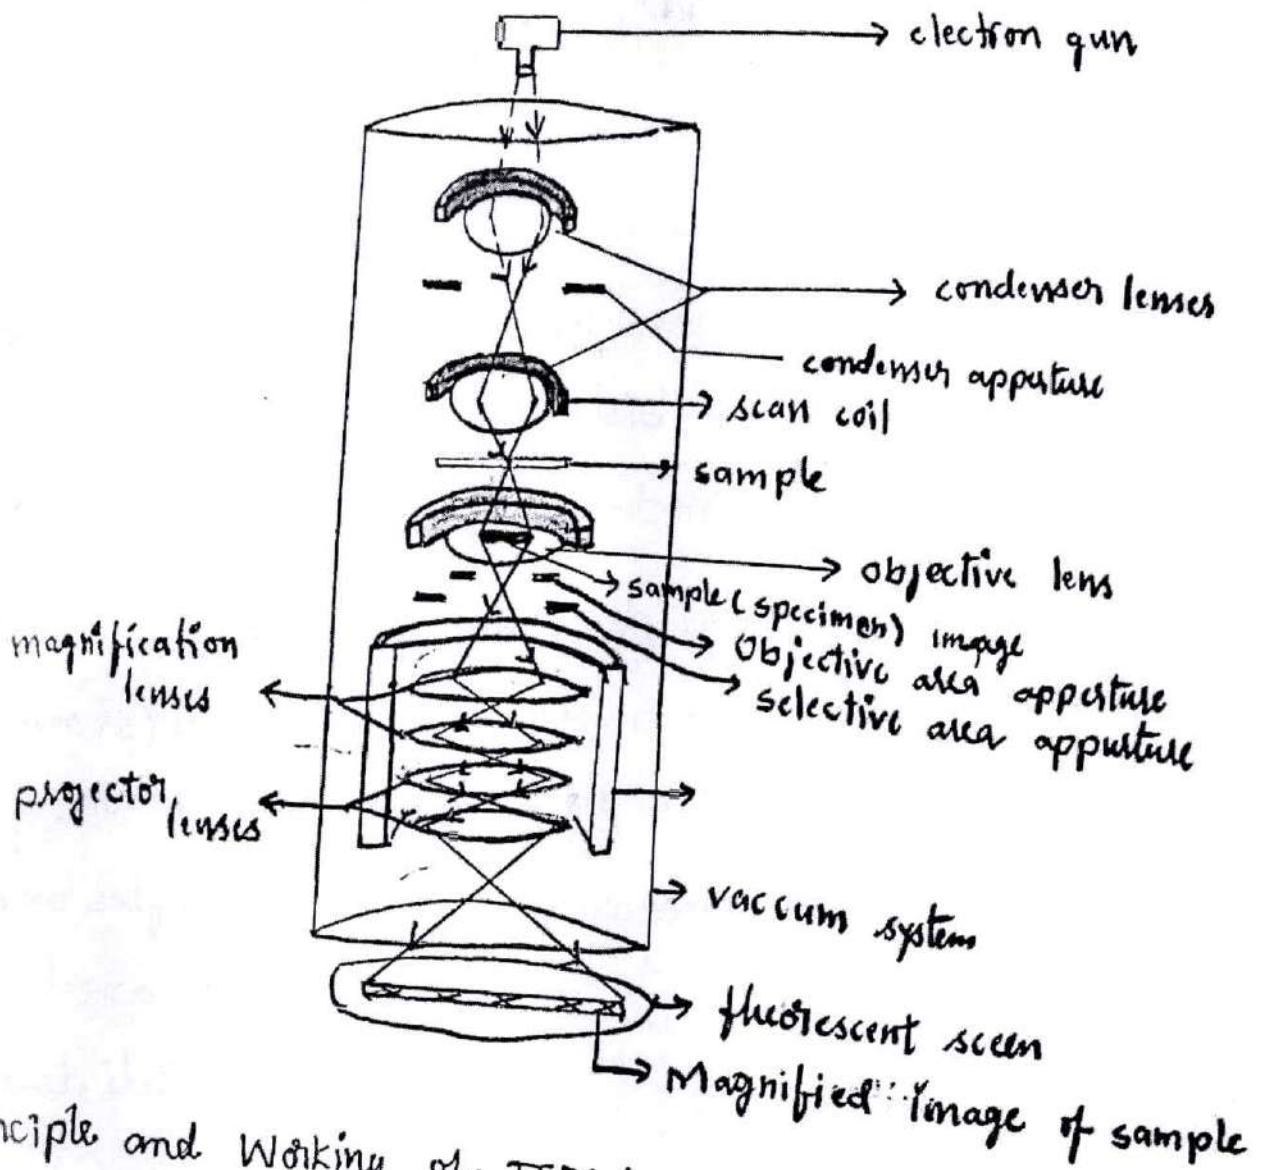 electron gun
condenser lenses
condenser apperture
scan coil
sample
objective lens
sample (specimen) image
Objective area apperture
selective area apperture
magnification
lenses
projector
lenses
vaccum system
fluorescent sceen
Magnified image of sample
and Working of